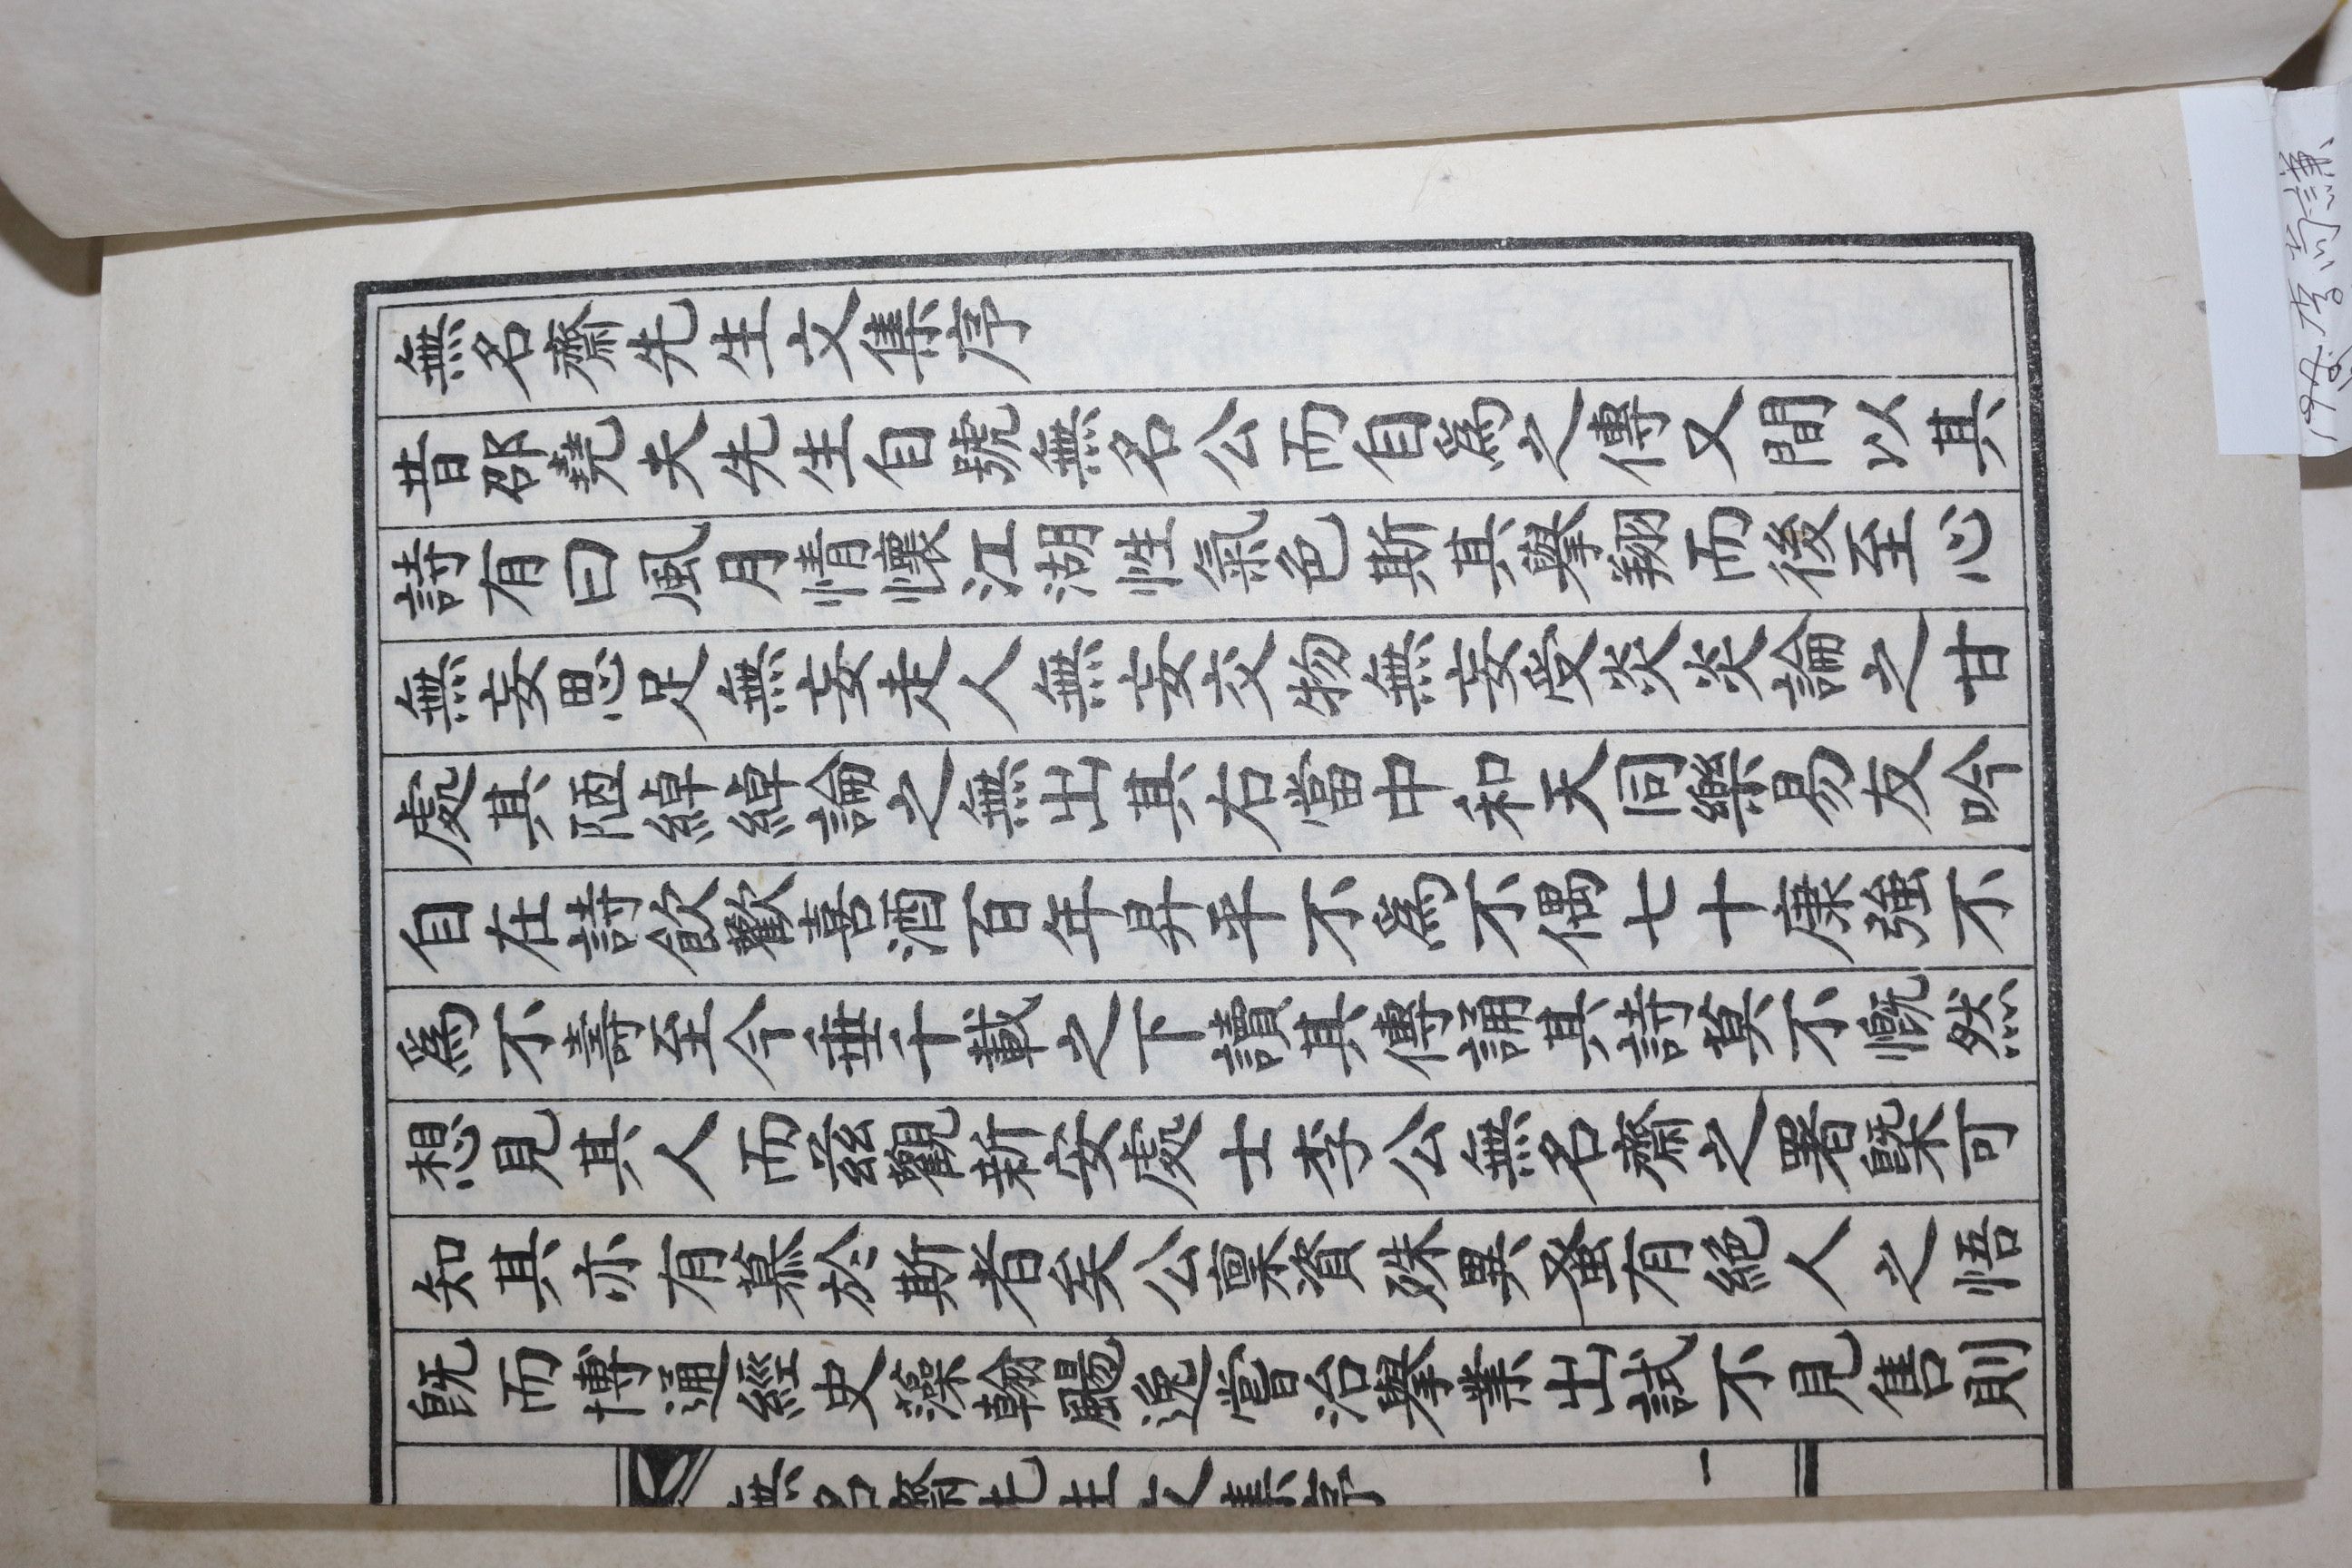 無名齋先生文集序
昔邵堯夫先生自號無名公而自爲之傳又間以其
詩有曰風月情懷江湖性氣色斯其擧翔而後至心
無妄思足無妄走人無妄交物無妄受炎炎論之甘
處其陋綽綽論之無出其右當中和天同樂易友吟
自在詩飮歡喜酒百年昇平不爲不偶七十康强不
爲不壽至今垂千載之下讀其傳誦其詩莫不慨然
想見其人而玆觀新安處士李公無名齋之署旣可
知其亦有慕於斯者矣公稟資殊異蚤有絶人之悟
旣而博通經史藻翰颺逸嘗治擧業出試不見售則
無名齋先生文集序 一